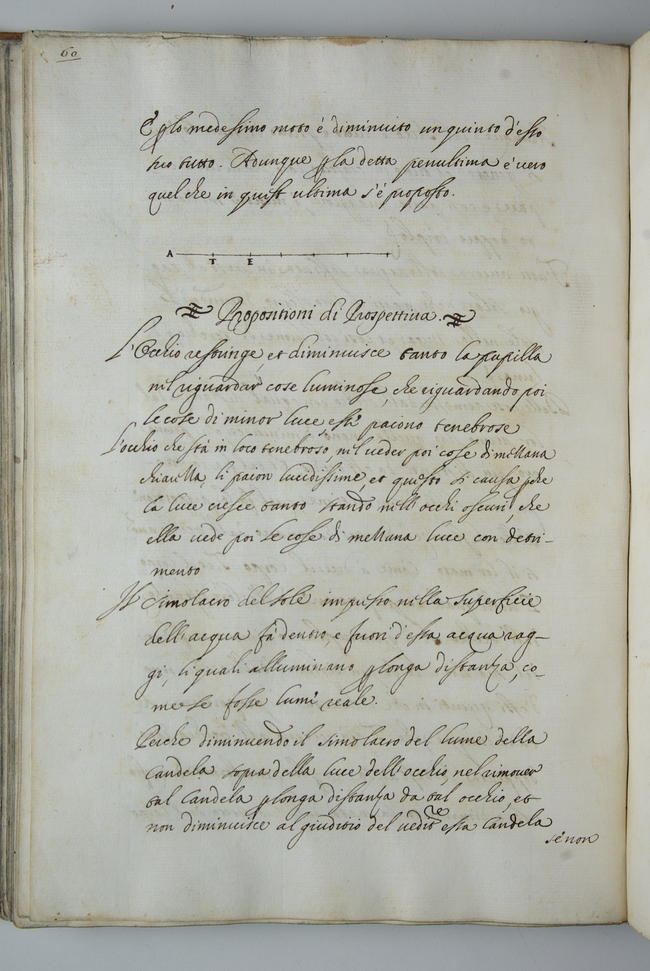 60
E p lo medesimo moto è diminuito un quinto d'esso
suo tutto. Adunque p la detta penultima è vero
quel che in quest ultima s'è proposto.
A T E
Propositioni di Prospettiva.
L'Occhio restringe, et diminuisce tanto la pupilla
nel riguardar cose luminose, che riguardando poi
le cose di minor luce, esse paiono tenebrose
L'occhio che stà in loco tenebroso, nel veder poi cose di mezzana
chiarezza, li paion lucidissime, et questo si causa pche
la luce cresce tanto stando nell' occhi oscuri, che
ella vede poi le cose di mezzana luce con detri-
mento
Il Simolacro del sole impresso nella superficie
dell' acqua fà dentro, e fuori d'essa acqua rag-
gi, li quali alluminano p longa distanza, co-
me se fosse lumi reale.
Perche diminuendo il simolacro del lume della
Candela sopra della luce dell' occhio, nel rimover
tal Candela p longa distanza da tal occhio, et
non diminuisce al giuditio del vedere essa Candela
se non